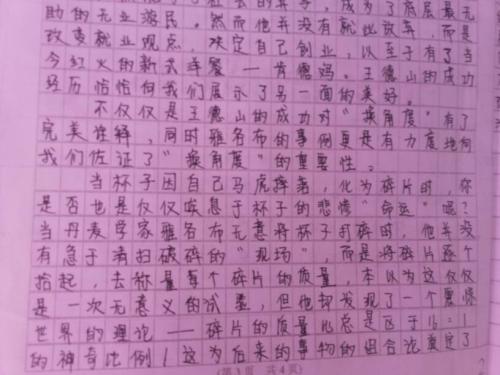 助的无业游民。然而他并没有就此放弃，而是
改变就业观点，决定自己创业，以至于有了当
今红火的新式洋餐——肯德妈。王德山的成功
经历恰恰向我们展示了另一面的美好。
不仅仅是王德山的成功对“换角度”有了
完美诠释，同时雅各布的事例更是有力度地向
我们佐证了“换角度”的重要性。
当杯子因自己马虎摔着，化为碎片时，你
是否也是仅仅唉息于杯子的悲惨“命运”呢？
当丹麦学家雅各布无意将杯子打碎时，他并没
有急于清扫破碎的“现场”，而是将碎片逐个
拾起，去称量每个碎片的质量，本以为这仅仅
是一次无意义的试量，但他却发现了一个震惊
世界的理论——碎片的质量比总是区于16：1
的神奇比例！这为后来的事物的组合论奠定了
（第3页 共4页）